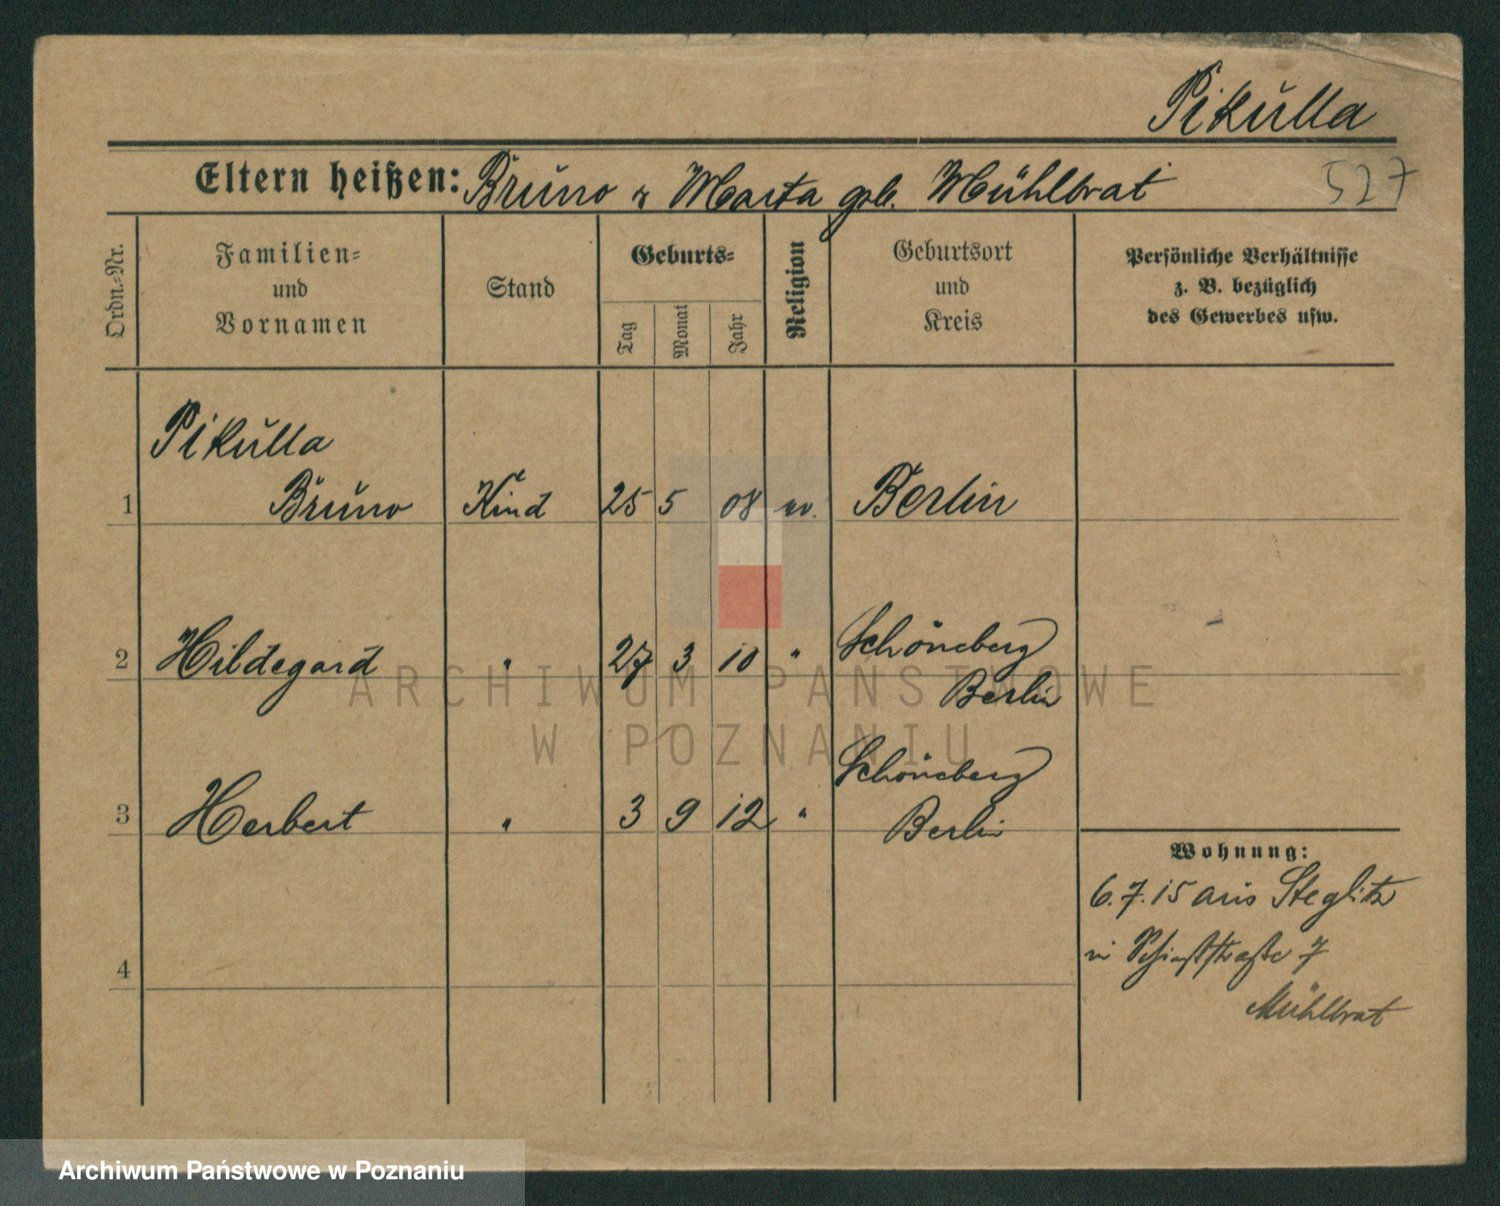 Pikulla
527
Eltern heißen: Bruno & Marta geb. Mühlbrat
Ordn.-Nr.
Familien- und Vornamen
Stand
Geburts-
Tag
Monat
Jahr
Religion
Geburtsort und Kreis
Persönliche Verhältnisse
z. B. bezüglich
des Gewerbes usw.
Pikulla
1 Bruno Kind 25 5 08 ev. Berlin
2 Hildegard " 27 3 10 " Schöneberg
Berlin
Schöneberg
3 Herbert " 3 9 12 " Berlin
Wohnung:
6.7.15 aus Steglitz
4
7
Mühlbrat
ARCHIWUM PAŃSTWOWE
W POZNANIU
Archiwum Państwowe w Poznaniu